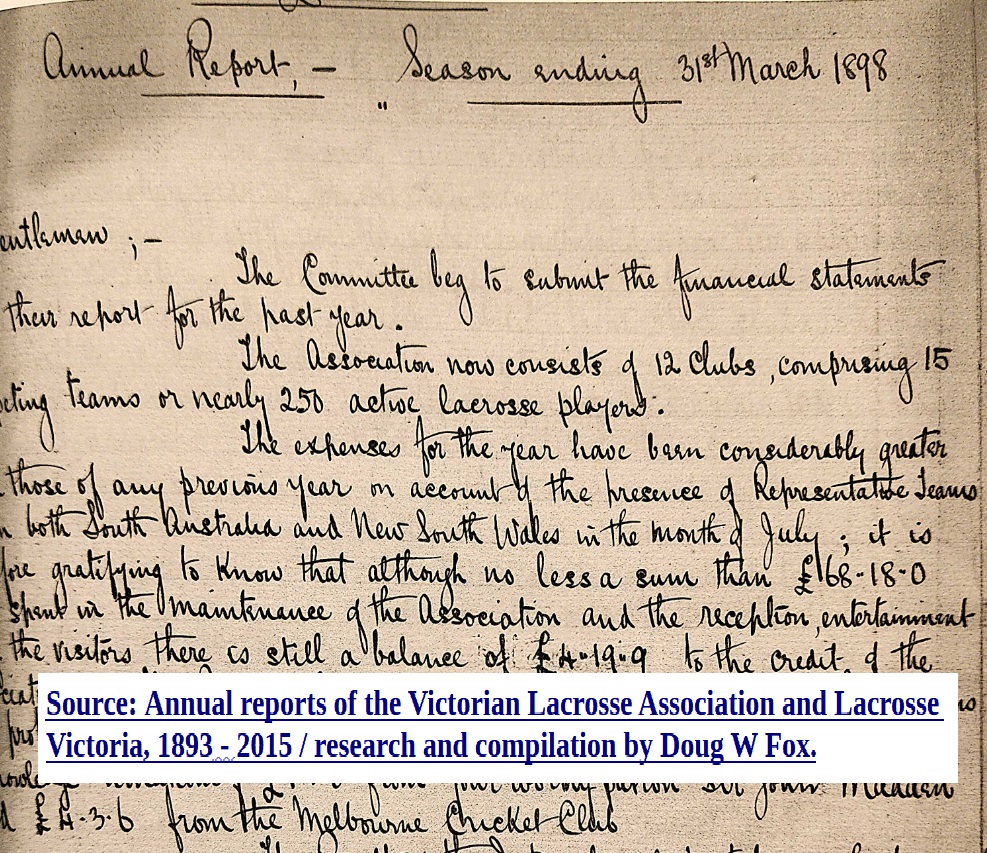 Annual Report, — Season ending 31st March 1898
"
entlemen ; —
The Committee beg to submit the financial statements
their report for the past year .
The Association now consists of 12 Clubs , comprising 15
eting teams or nearly 250 active lacrosse players .
The expenses for the year have been considerably greater
those of any previous year on account of the presence of Representative Teams
n both South Australia and New South Wales in the month of July ; it is
fore gratifying to know that although no less a sum than £168-18-0
spent in the maintenance of the Association and the reception , entertainment
the visitors there is still a balance of £4-19-9 to the credit of the
ciat
Source: Annual reports of the Victorian Lacrosse Association and Lacrosse
Victoria, 1893 - 2015 / research and compilation by Doug W Fox.
from your worthy patron Sir John Madden
d £4-3-6 from the Melbourne Cricket Club